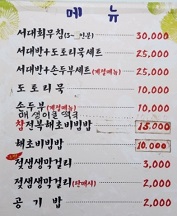 메뉴
서대회무침(3~4인분) 30,000
서대반+도토리묵세트 25,000
서대반+손두부세트(계절메뉴) 25,000
도토리묵 10,000
손두부(계절메뉴) 10,000
매생이떡국
참전복해초비빔밥 15,000
해초비빔밥 10,000
젖샘생막걸리 3,000
젖샘생막걸리(반되시) 2,000
공기밥 2,000